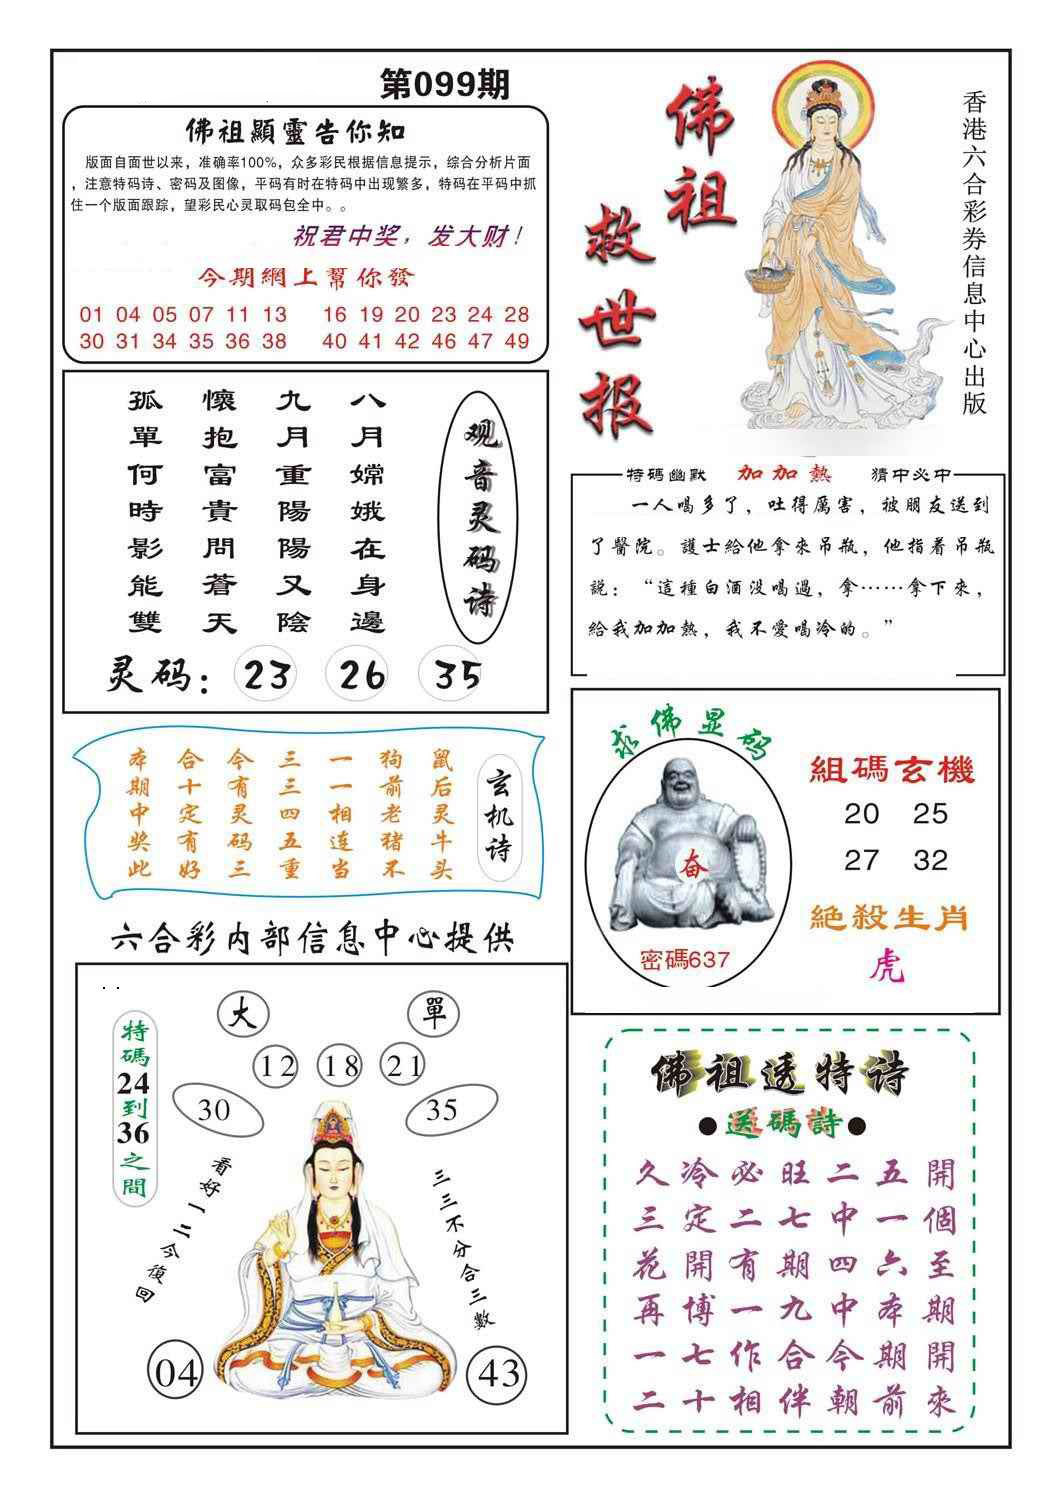 第099期
佛祖顯靈告你知
版面自面世以来，准确率100%，众多彩民根据信息提示，综合分析片面
，注意特码诗、密码及图像，平码有时在特码中出现繁多，特码在平码中抓
住一个版面跟踪，望彩民心灵取码包全中。。
祝君中奖，发大财！
今期網上幫你發
01 04 05 07 11 13 16 19 20 23 24 28
30 31 34 35 36 38 40 41 42 46 47 49
佛祖
救世报
香港六合彩券信息中心出版
观音灵码诗
八月嫦娥在身邊
九月重陽陽又陰
懷抱富貴問蒼天
孤單何時影能雙
灵码：23 26 35
特碼幽默 加加熱 猜中必中
一人喝多了，吐得厲害，被朋友送到
了醫院。護士給他拿來吊瓶，他指着吊瓶
説：“這種白酒没喝過，拿……拿下來，
給我加加熱，我不愛喝冷的。”
玄机诗
鼠后灵牛头
狗前老猪不
一一相连当
三三四五重
今有灵码三
合十定有好
本期中奖此
求佛显码
奋
密碼637
組碼玄機
20 25
27 32
絕殺生肖
虎
六合彩内部信息中心提供
特碼24到36之間
大 單
12 18 21
30 35
看好一二今復回
三三不分合三數
04 43
佛祖透特诗
●送碼詩●
久冷必旺二五開
三定二七中一個
花開有期四六至
再博一九中本期
一七作合今期開
二十相伴朝前來